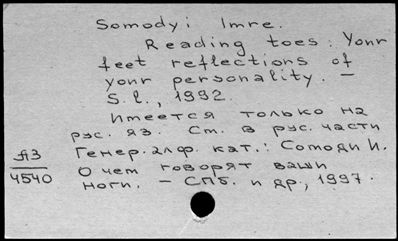 Somodyi Imre.
Reading toes: Your
feet reflections of
your personality. –
S.l., 1992.
Имеется только на
рус. яз. См. в рус. части
Генер. алф. кат.: Сомоди И.
О чем говорят ваши
ноги. – СПб. и др., 1997.
ЯЗ
4540